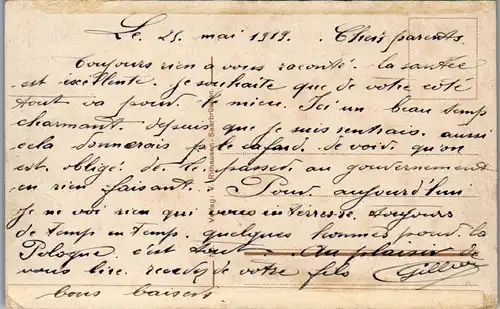 Le 25 mai 1919. Chers parents
Toujours rien a vous raconté. la santée
est excellente. je souhaite que de votre coté
tout va pour le mieu. Ici un beau temp
charmant. depuis que je suis aussi
cela donnerais le cafard. je voir qu'on
est obligé de le passer au gouvernement
en rien faisant. Pour aujourd'hui
je ne voi rien qui vous interresse. toujours
de temp en temp. quelques hommes pour la
Pologne. c'est tout. Au plaisir de
vous lire. recevez de votre fils
bons baisers
Verlag: Saarbrücken